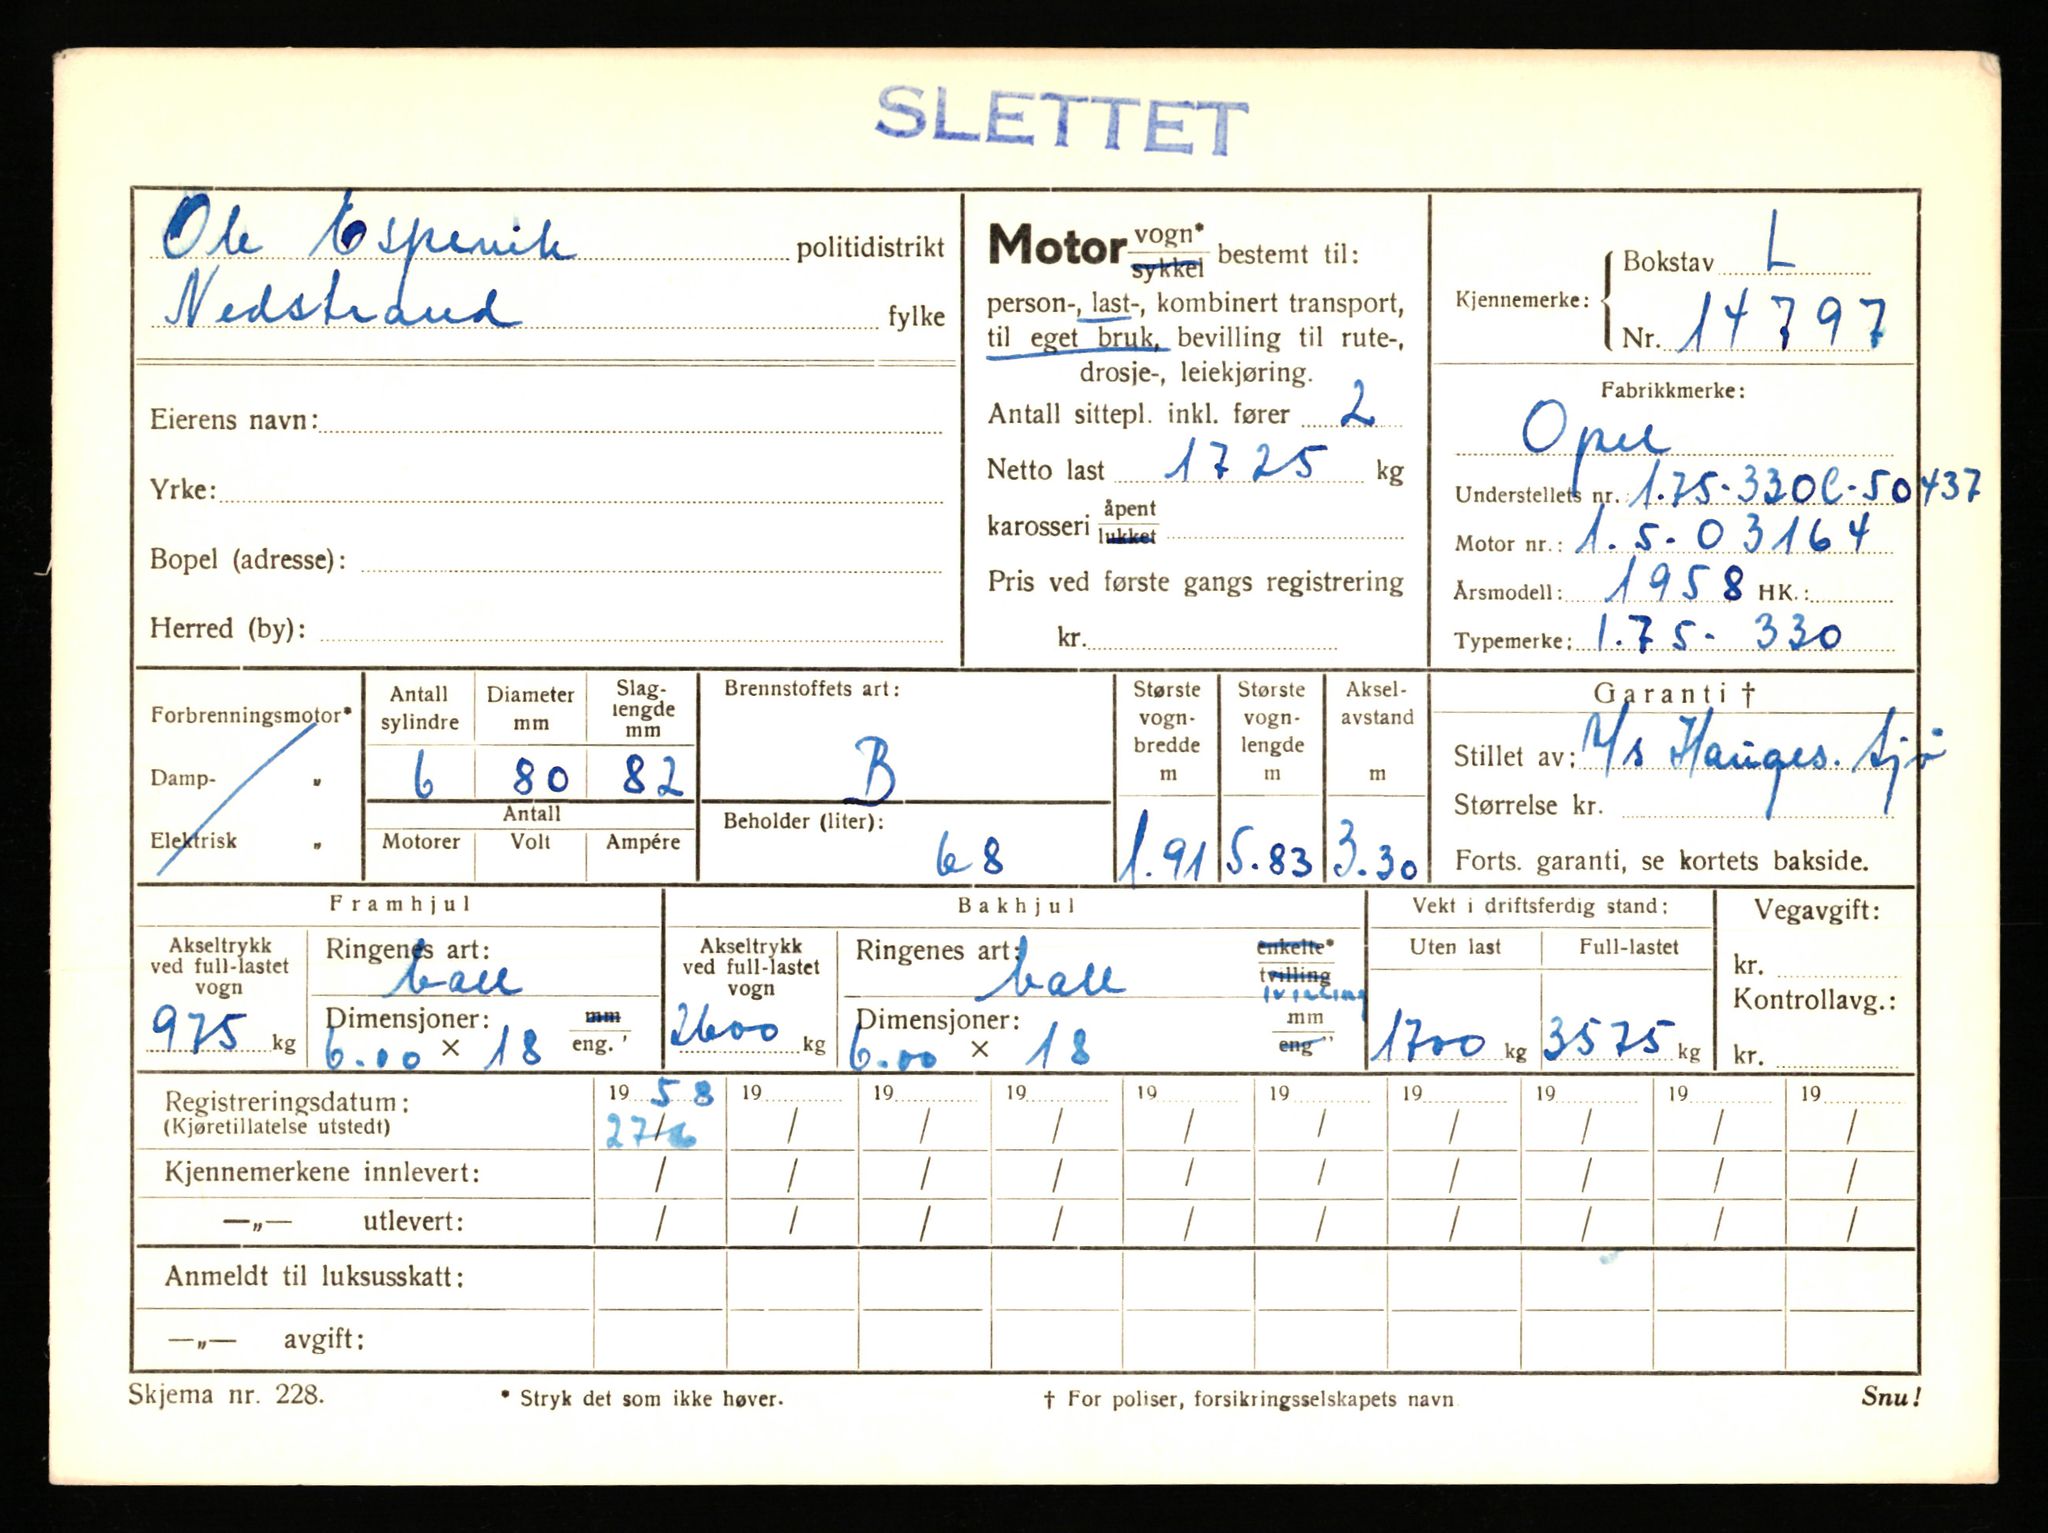 SLETTET
Ole Espevik politidistrikt
Nedstrand fylke
Eierens navn:
Yrke:
Bopel (adresse):
Herred (by):
Motor vogn* sykkel bestemt til:
person-, last-, kombinert transport,
til eget bruk, bevilling til rute-,
drosje-, leiekjøring.
Antall sittepl. inkl. fører 2
Netto last 1725 kg
karosseri åpent lukket
Pris ved første gangs registrering
kr.
Kjennemerke: Bokstav L
Nr. 14797
Fabrikkmerke:
Opel
Understellets nr. 1.75-330C-50437
Motor nr.: 1.5-03164
Årsmodell: 1958 HK.:
Typemerke: 1.75-330
Forbrenningsmotor*
Damp- „
Elektrisk „
Antall sylindre
Diameter mm
Slag-lengde mm
6 80 82
Antall
Motorer Volt Ampére
Brennstoffets art:
B
Beholder (liter):
68
Største vogn-bredde m
1.91
Største vogn-lengde m
5.83
Aksel-avstand m
3.30
Garanti †
Stillet av: Hauges. Sjø
Størrelse kr.
Forts. garanti, se kortets bakside.
Framhjul
Akseltrykk ved full-lastet vogn
975 kg
Ringenes art:
ball
Dimensjoner: mm eng. '
6.00 × 18
Bakhjul
Akseltrykk ved full-lastet vogn
2600 kg
Ringenes art: enkelte* tvilling
ball tvilling
Dimensjoner: mm eng "
6.00 × 18
Vekt i driftsferdig stand:
Uten last Full-lastet
1700 kg 3575 kg
Vegavgift:
kr.
Kontrollavg.:
kr.
Registreringsdatum: 1958 19 19 19 19 19 19 19 19 19
(Kjøretillatelse utstedt) 27/6 / / / / / / / / /
Kjennemerkene innlevert: / / / / / / / / / /
—„— utlevert: / / / / / / / / / /
Anmeldt til luksusskatt:
—„— avgift:
Skjema nr. 228. * Stryk det som ikke høver. † For poliser, forsikringsselskapets navn Snu!